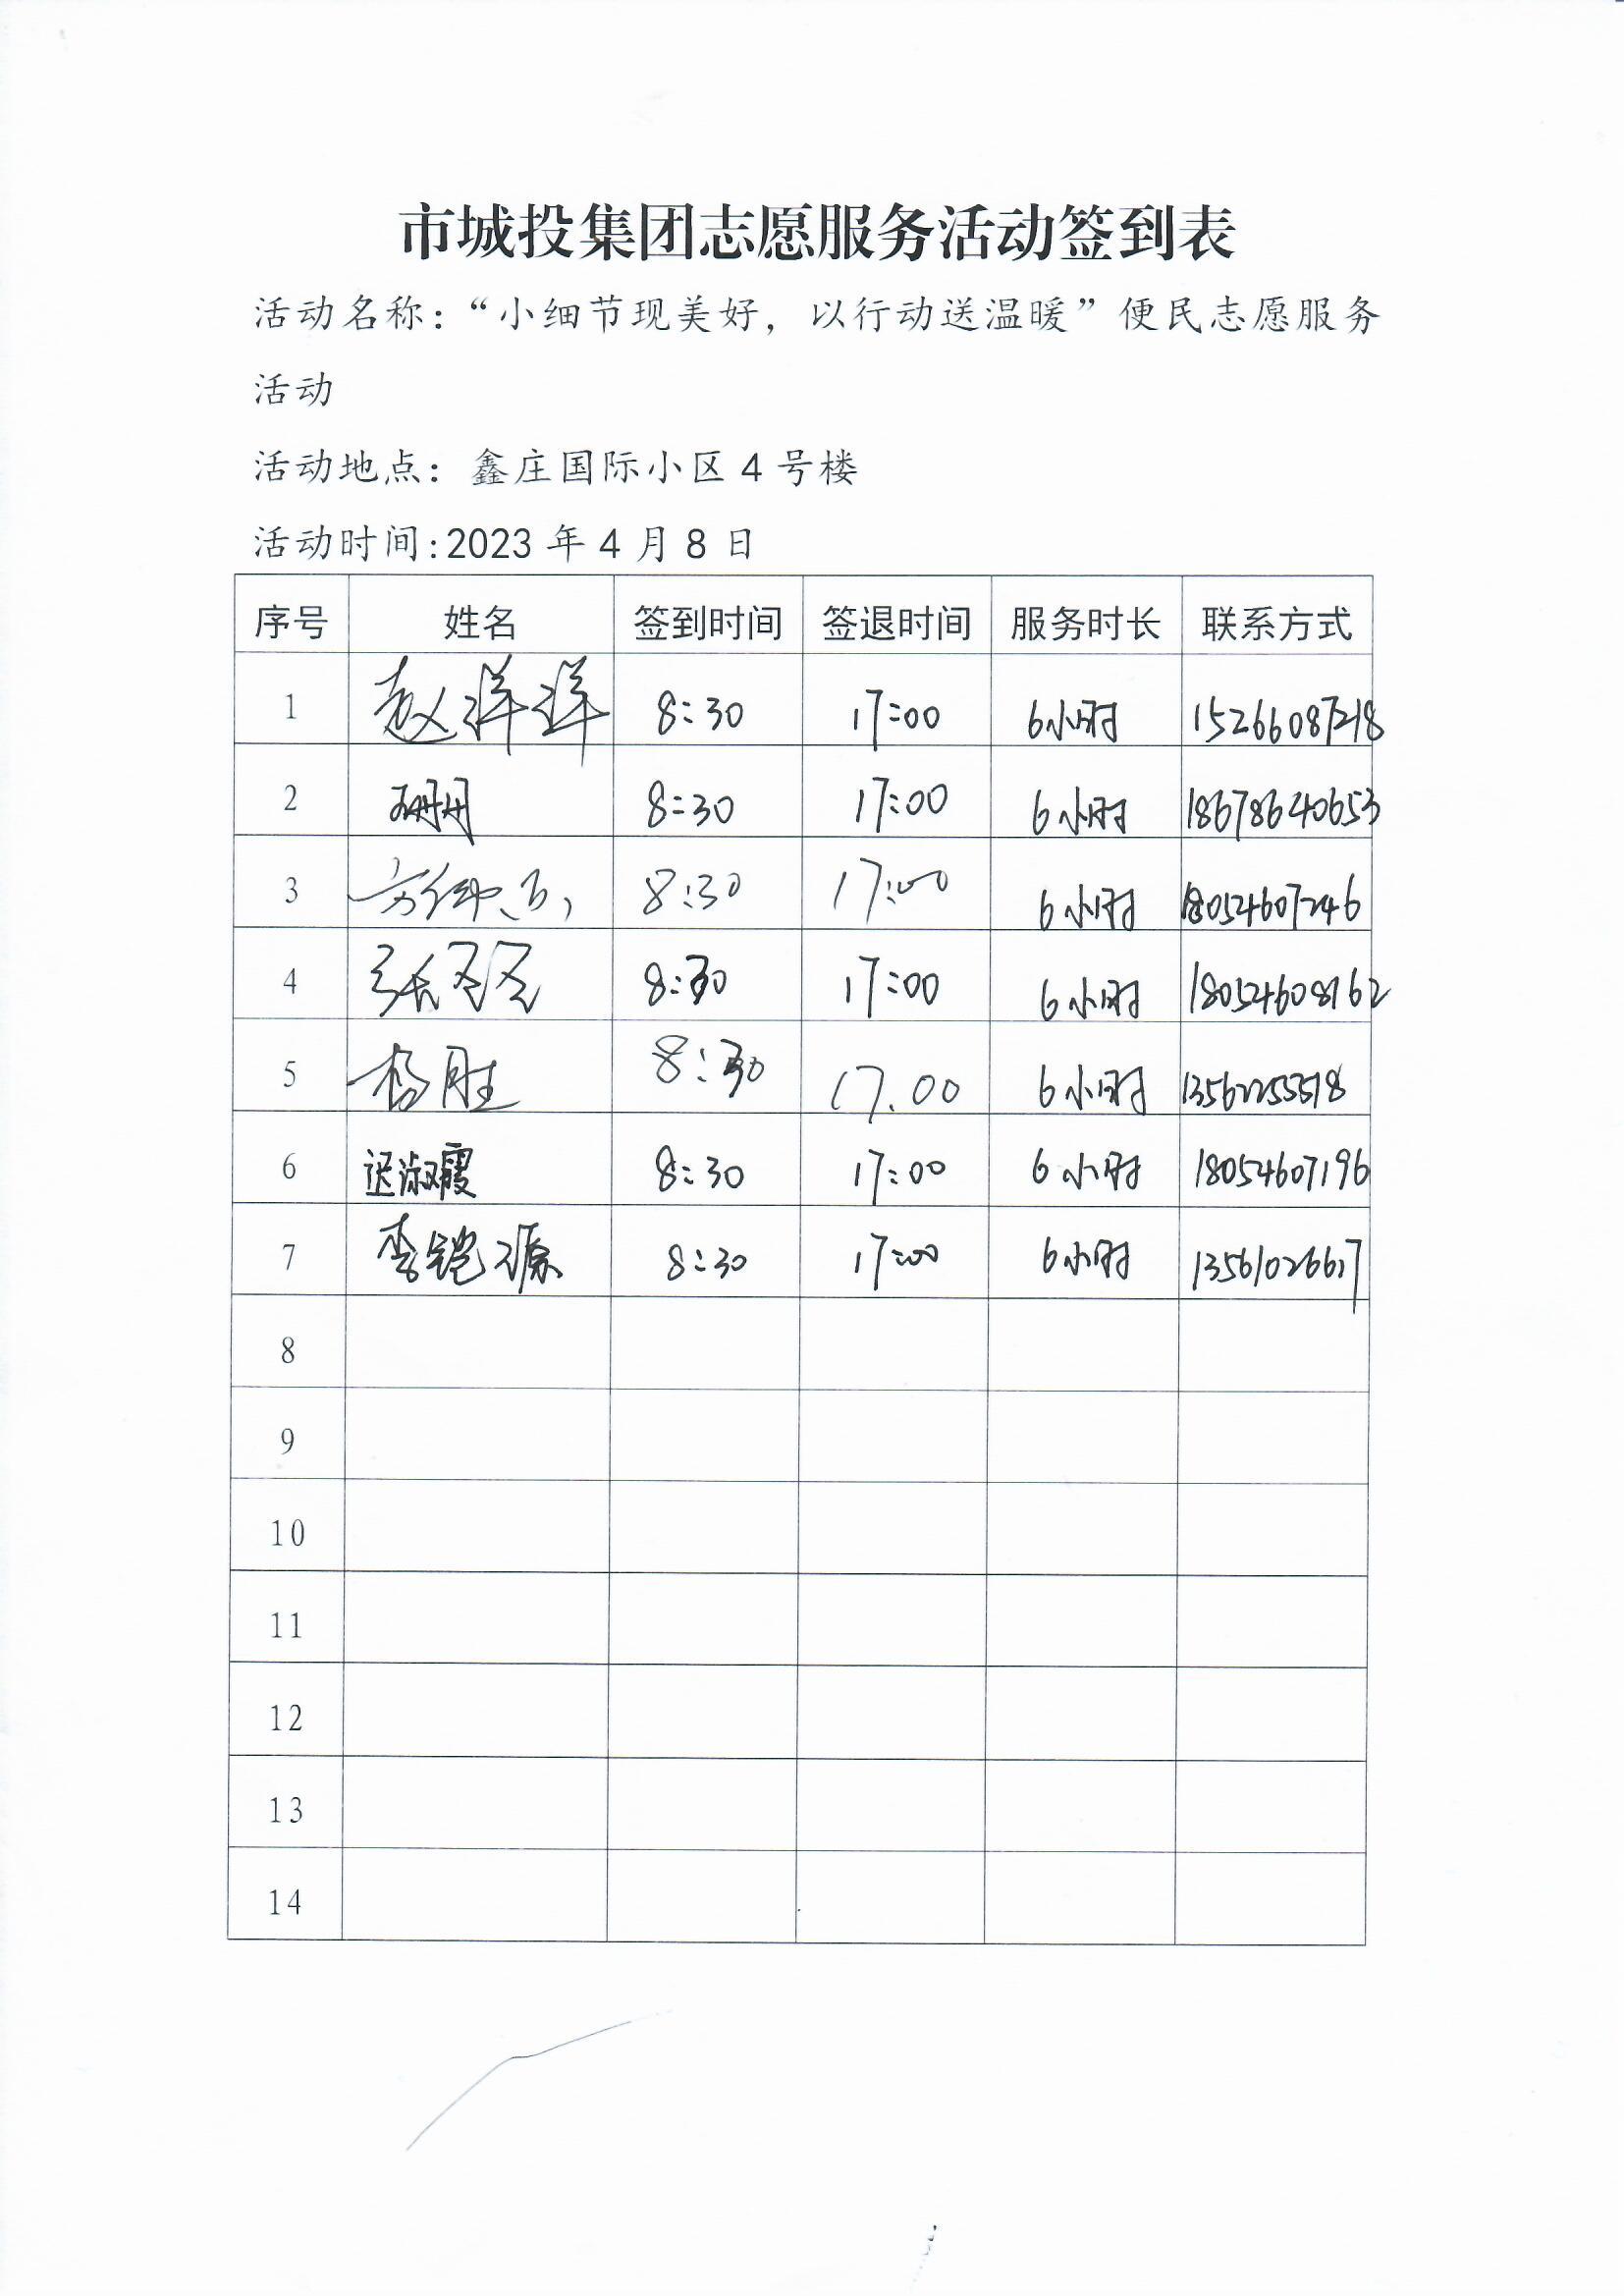 市城投集团志愿服务活动签到表
活动名称：“小细节现美好，以行动送温暖”便民志愿服务
活动
活动地点：鑫庄国际小区 4 号楼
活动时间:2023 年 4 月 8 日
序号 姓名 签到时间 签退时间 服务时长 联系方式
1 赵洋洋 8:30 17:00 6小时 15266087218
2 8:30 17:00 6小时 18678640653
3 8:30 17:00 6小时 18054607246
4 8:30 17:00 6小时 18054608162
5 杨胜 8:30 17.00 6小时 13562255518
6 迟淑霞 8:30 17:00 6小时 18054607196
7 李锴源 8:30 17:00 6小时 13561026617
8
9
10
11
12
13
14